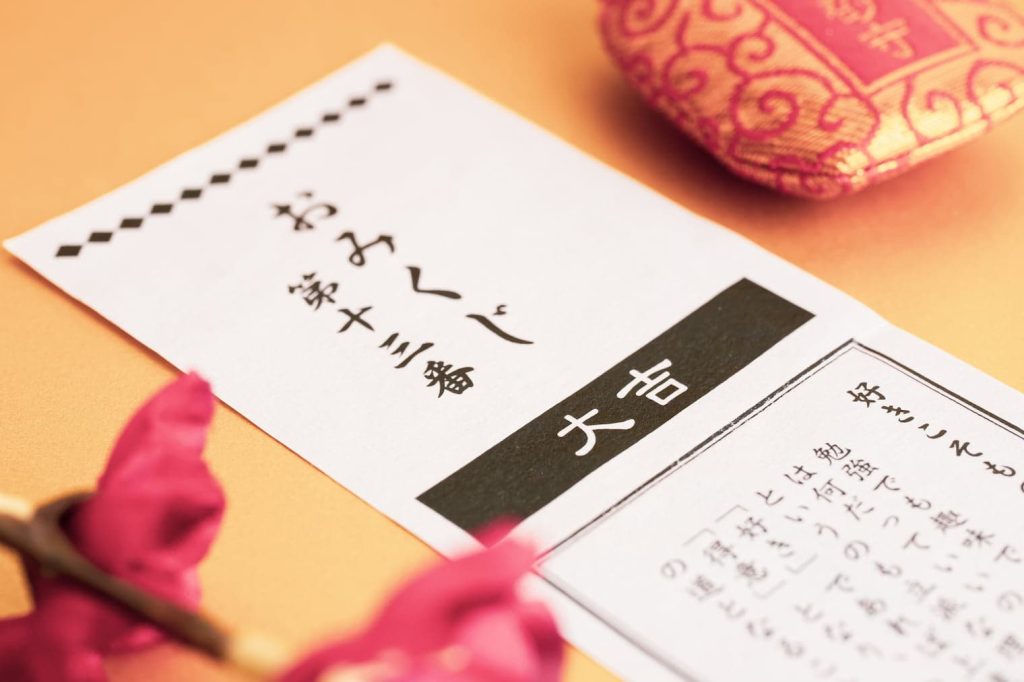 おみくじ
第十三番
大吉
好きこそも
勉強でも趣味で
は何だっていいの
というのも立派な理
「好き」であれば上
「得意」となり、
の道となるこ